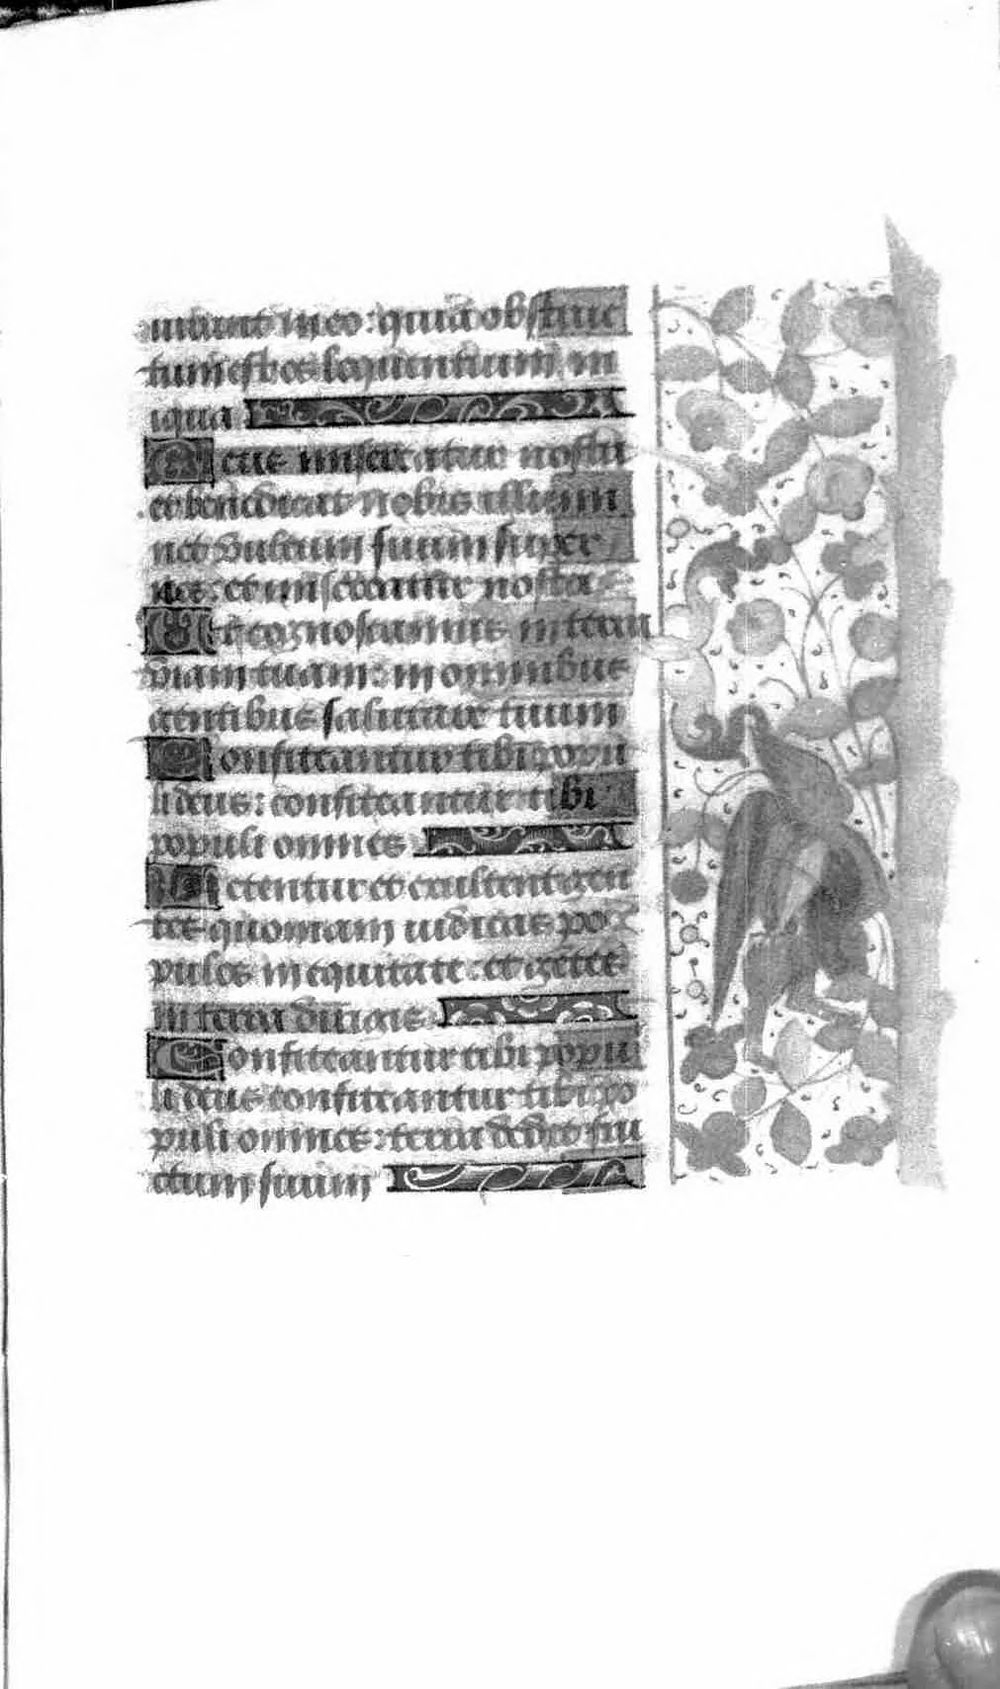 iurant in eo: quia obstruc
tum est os loquentium in
iqua
Deus misereatur nostri
et benedicat nobis illumi
net vultum suum super
nos: et misereatur nostri
Ut cognoscamus in terra
viam tuam: in omnibus
gentibus salutare tuum
Confiteantur tibi popu
li deus: confiteantur tibi
populi omnes
Letentur et exultent gen
tes quoniam iudicas po
pulos in equitate: et gentes
in terra dirigis
Confiteantur tibi popu
li deus confiteantur tibi po
puli omnes: terra dedit fru
ctum suum